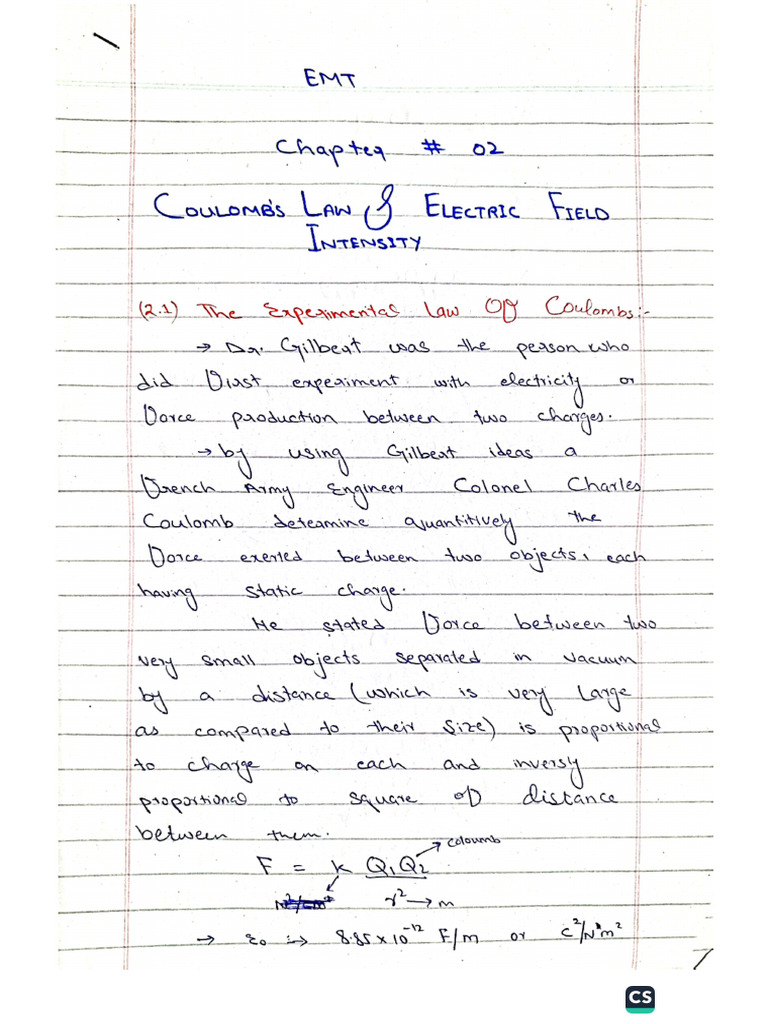 EMT
Chapter # 02
COULOMB'S LAW & ELECTRIC FIELD
INTENSITY
(2.1) The Experimental Law Of Coulombs:-
→ Dr. Gilbert was the person who
did first experiment with electricity or
force production between two charges.
→ by using Gilbert ideas a
french Army Engineer Colonel Charles
Coulomb determine quantitively the
force exerted between two objects, each
having static charge.
He stated force between two
very small objects separated in vacuum
by a distance (which is very large
as compared to their size) is proportional
to charge on each and inversly
proportional to square of distance
between them.
F = k Q₁Q₂ → coloumb
r² → m
→ ε₀ => 8.85×10⁻¹² F/m or c²/Nm²
CS